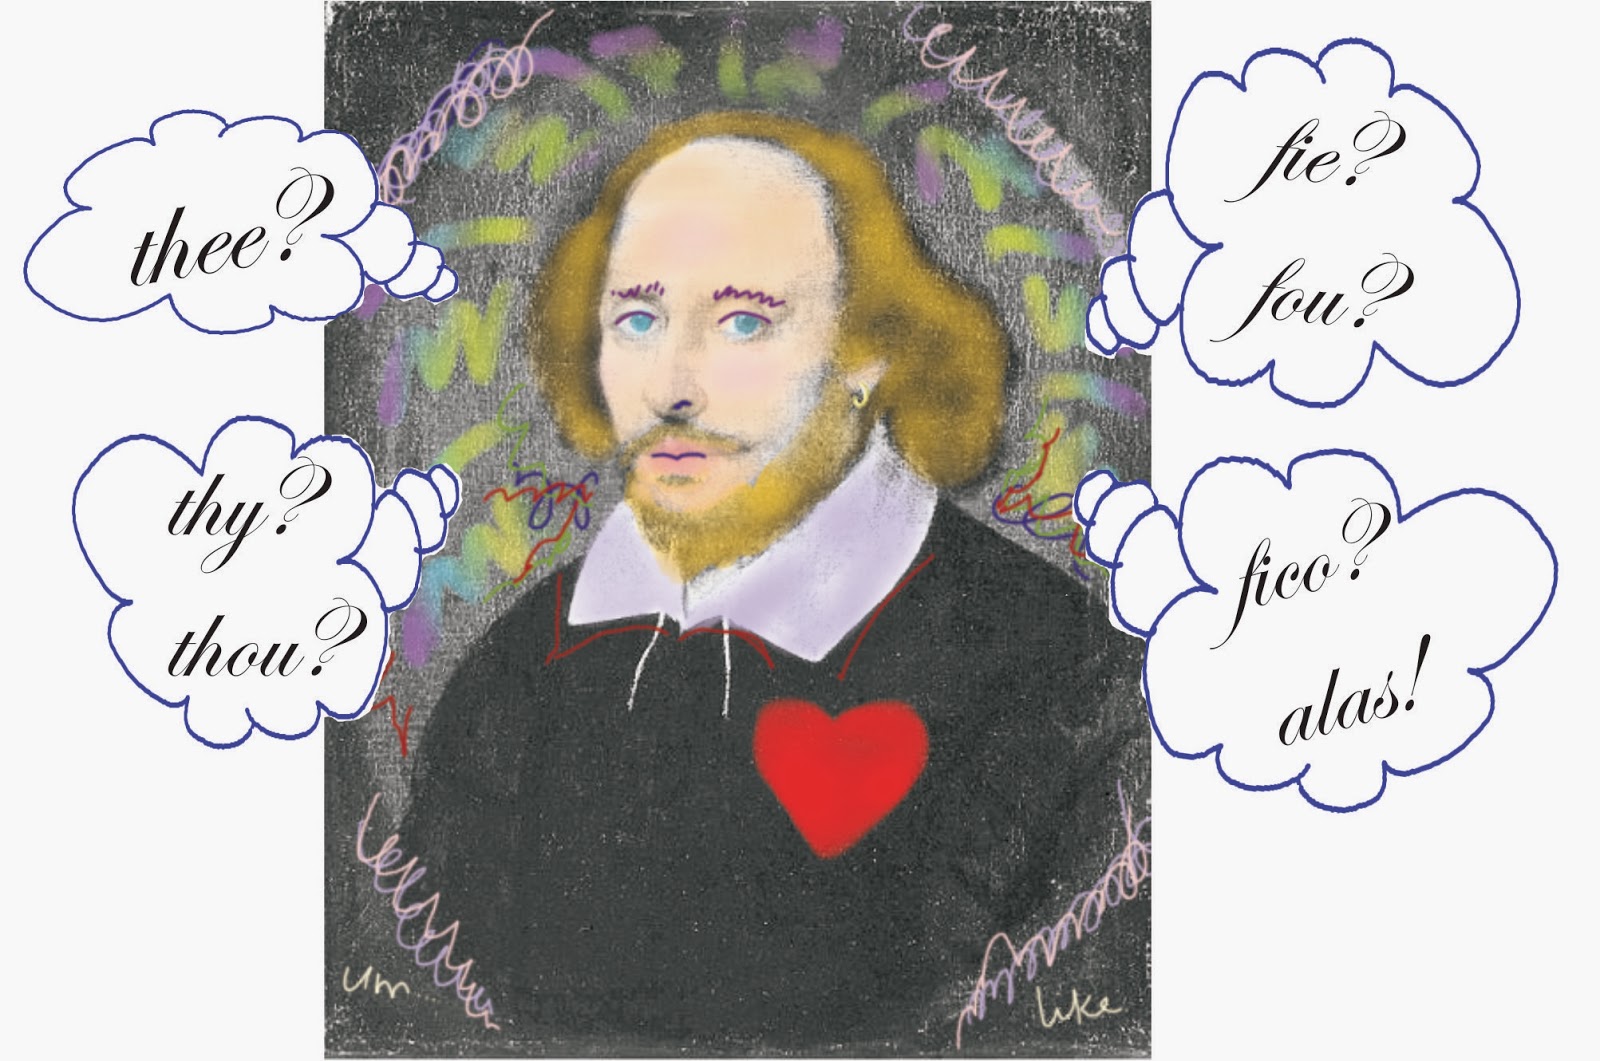 thee?
thy?
thou?
fie?
fou?
fico?
alas!
um...
luke